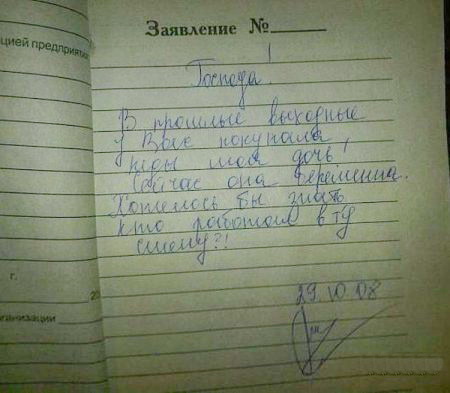 Заявление №
цией предприятия
Господа!
В прошлые выходные
у Вас покупала
кеды моя дочь!
Сейчас она беременна.
Хотелось бы знать
кто работал в ту
смену?!
г.
20
рганизации
29.10.08